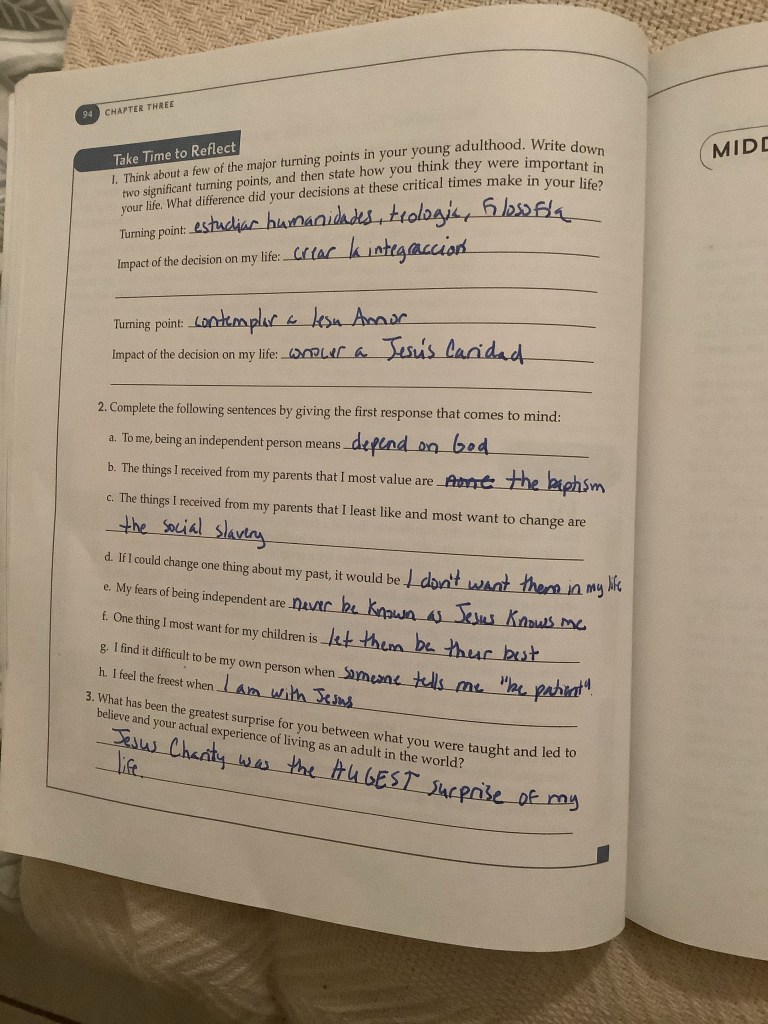 94 CHAPTER THREE
Take Time to Reflect
1. Think about a few of the major turning points in your young adulthood. Write down
two significant turning points, and then state how you think they were important in
your life. What difference did your decisions at these critical times make in your life?
Turning point: estudiar humanidades, teologia, Filosofía
Impact of the decision on my life: crear la integraccion
Turning point: contemplar a Jesu Amor
Impact of the decision on my life: conocer a Jesús Caridad
2. Complete the following sentences by giving the first response that comes to mind:
a. To me, being an independent person means depend on God
b. The things I received from my parents that I most value are none the baptism
c. The things I received from my parents that I least like and most want to change are
the social slavery
d. If I could change one thing about my past, it would be I don't want them in my life
e. My fears of being independent are never be known as Jesus knows me
f. One thing I most want for my children is let them be their best
g. I find it difficult to be my own person when someone tells me "be patient".
h. I feel the freest when I am with Jesus
3. What has been the greatest surprise for you between what you were taught and led to
believe and your actual experience of living as an adult in the world?
Jesus Charity was the HUGEST surprise of my
life.
MIDD